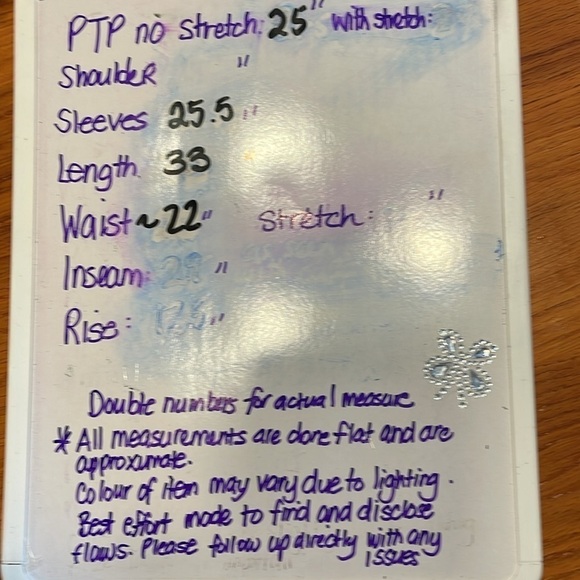 PTP no stretch: 25" with stretch:
ShouldeR "
Sleeves 25.5"
Length 33
Waist ~ 22" Stretch: "
Inseam: "
Rise: "
Double numbers for actual measure
* All measurements are done flat and are
approximate.
Colour of item may vary due to lighting.
Best effort made to find and disclose
flaws. Please follow up directly with any
issues